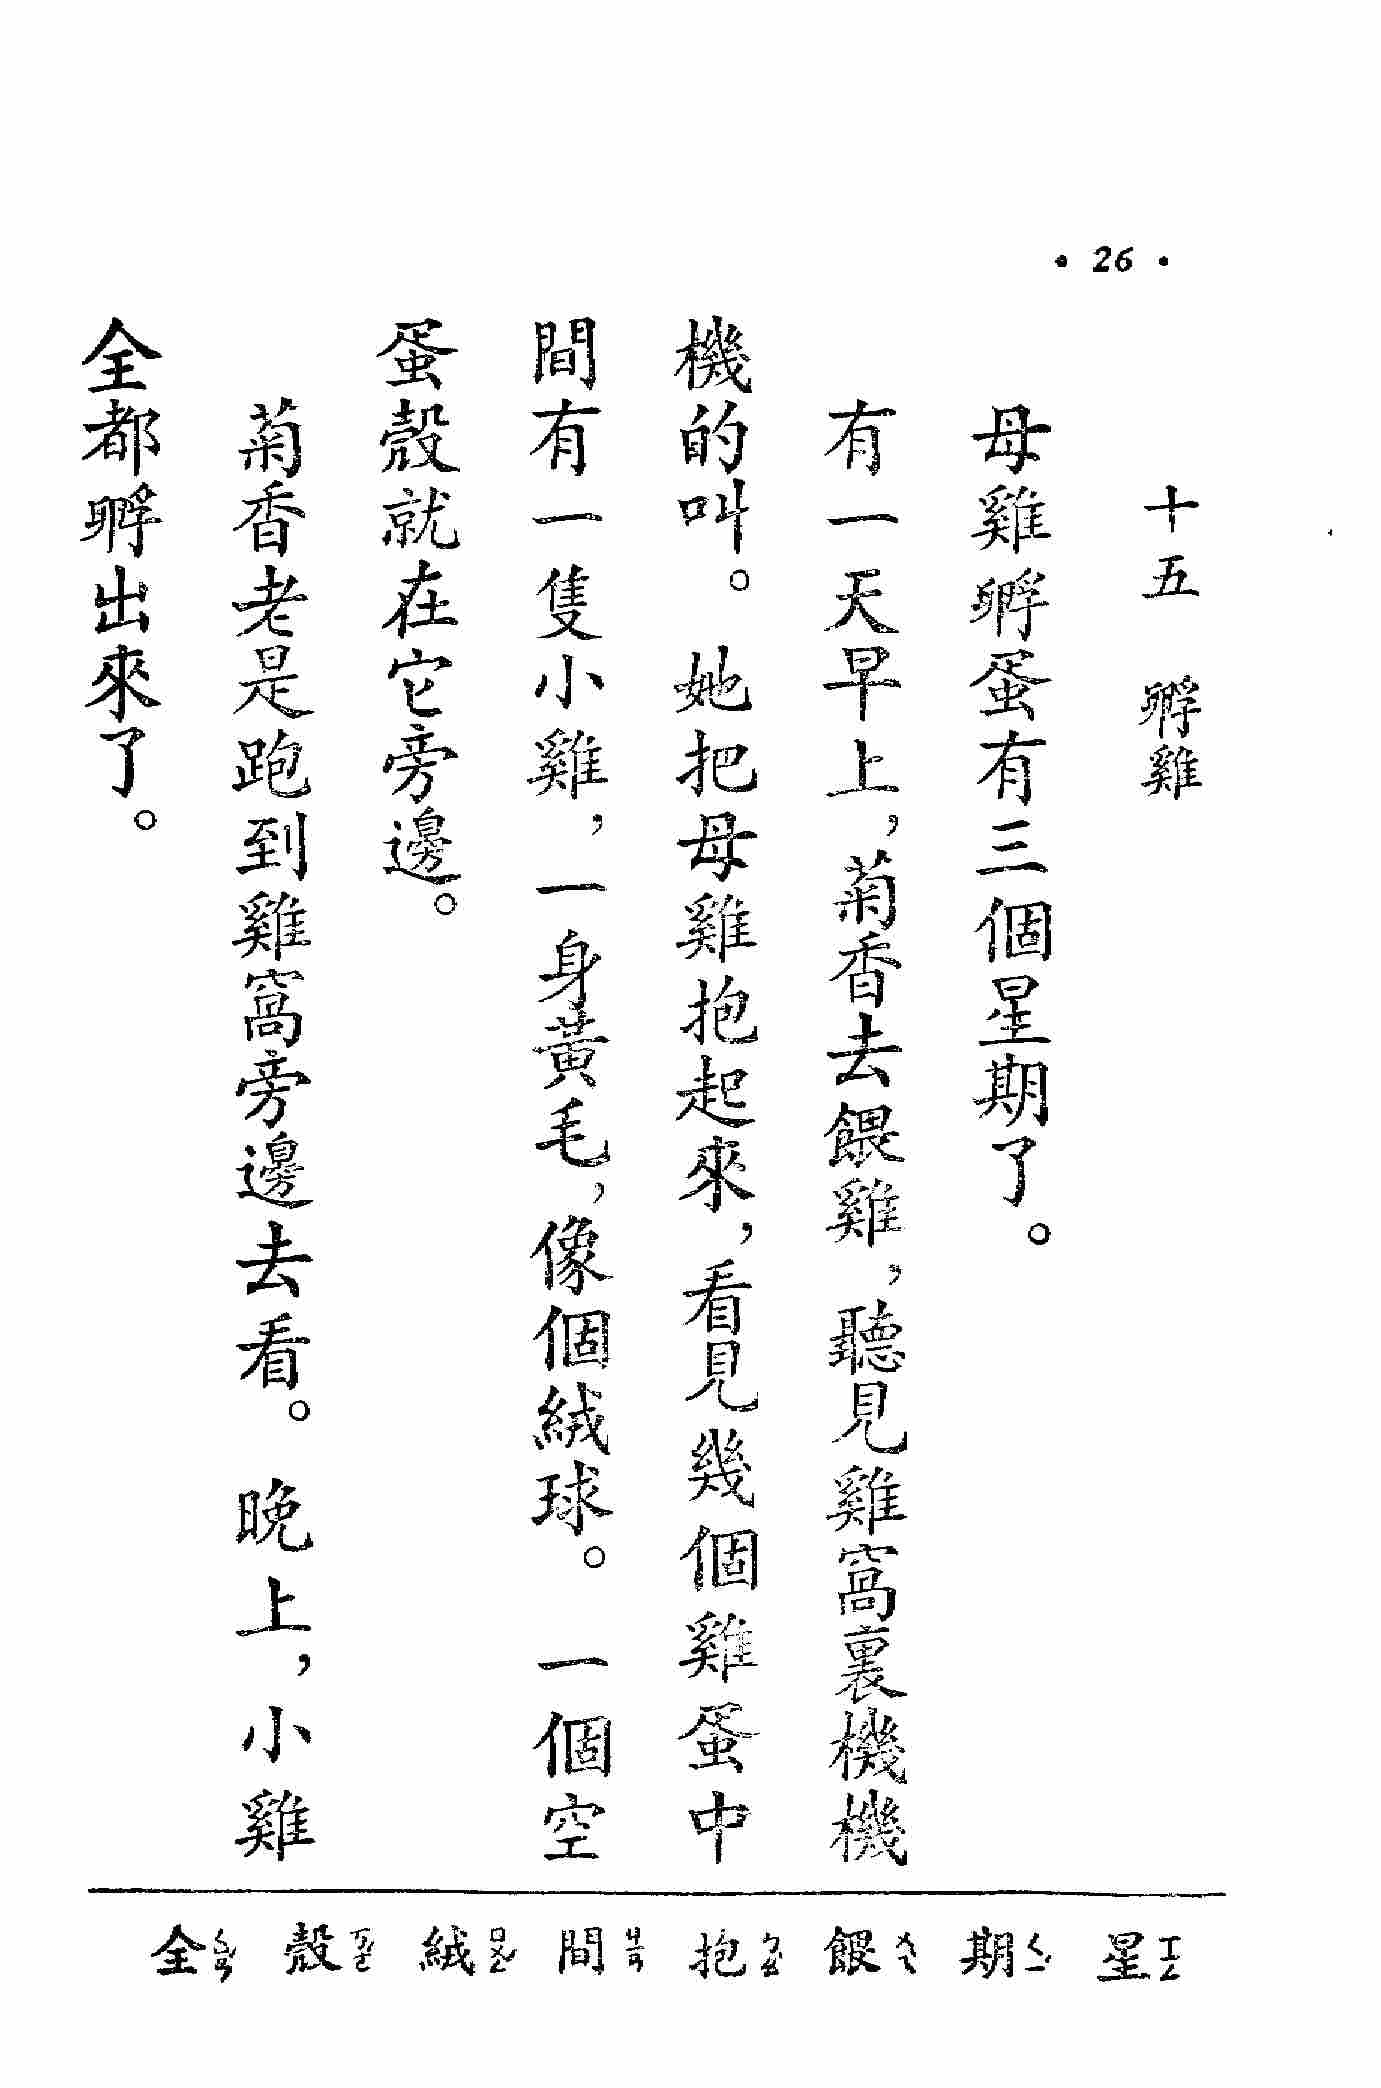 • 26 •
十五　孵雞
母雞孵蛋有三個星期了。
有一天早上，菊香去餵雞，聽見雞窩裏機機
機的叫。她把母雞抱起來，看見幾個雞蛋中
間有一隻小雞，一身黃毛，像個絨球。一個空
蛋殼就在它旁邊。
菊香老是跑到雞窩旁邊去看。晚上，小雞
全都孵出來了。
星 期 餵 抱 間 絨 殼 全